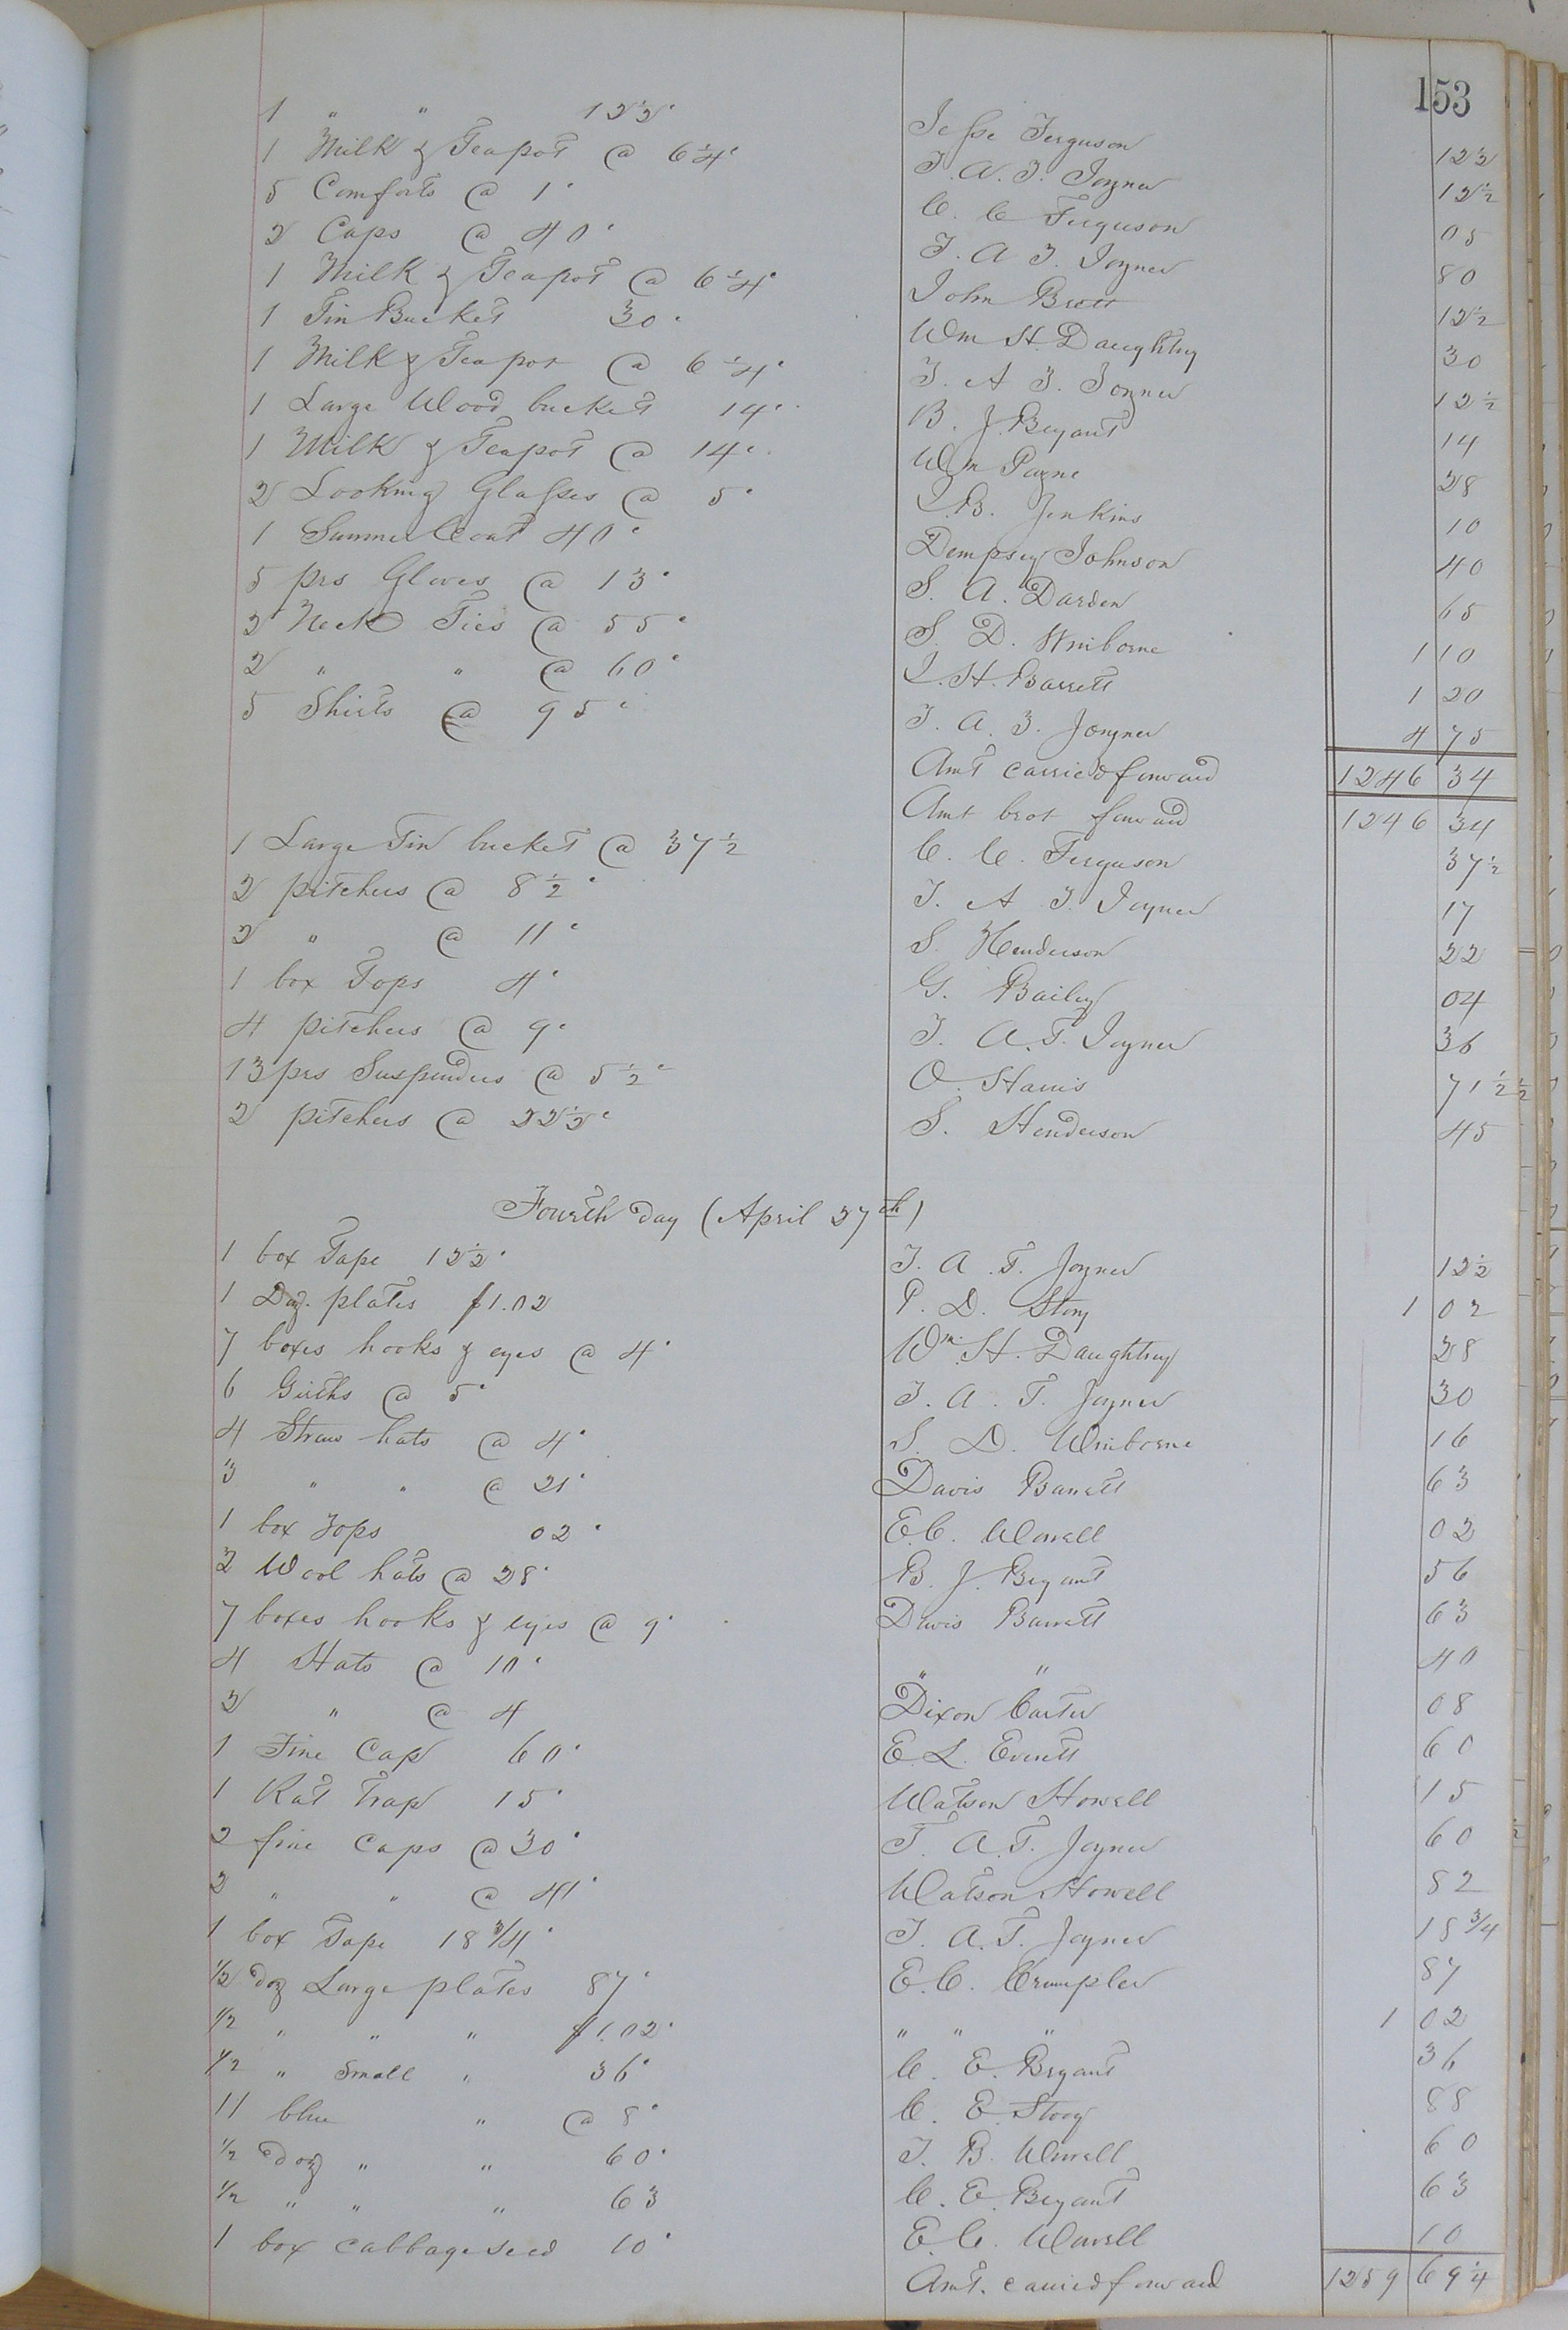 153
1 " " 12½c Jesse Ferguson 12½
1 Milk & Teapot @ 6¼c T. A. T. Joyner 12½
5 Comforts @ 1c C. C. Ferguson 05
2 Caps @ 40c T. A T. Joyner 80
1 Milk & Teapot @ 6¼c John Brett 12½
1 Tin Bucket 30c Wm H Daughtry 30
1 Milk & Teapot @ 6¼c T. A T. Joyner 12½
1 Large Wood bucket 14c B. J. Bryant 14
1 Milk & Teapot @ 14c Wm Payne 28
2 Looking Glasses @ 5c J. B. Jenkins 10
1 Summer Coat 40c Dempsey Johnson 40
5 prs Gloves @ 13c S. A. Darden 65
2 Neck Ties @ 55c S. D. Winborne 1 10
2 " " @ 60c J. H. Barrett 1 20
5 Shirts @ 95c T. A. T. Joyner 4 75
Amt carried forward 1246 34
Amt brot forward 1246 34
1 Large Tin bucket @ 37½ C. C. Ferguson 37½
2 pitchers @ 8½c T. A T. Joyner 17
2 " @ 11c S. Henderson 22
1 box Tops 4c G. Bailey 04
4 pitchers @ 9c T. A. T. Joyner 36
13 prs Suspenders @ 5½c O. Harris 71½
2 pitchers @ 22½c S. Henderson 45
Fourth Day (April 27th)
1 box Tape 12½c T. A. T. Joyner 12½
1 Doz. plates $1.02 P. D. Story 1 02
7 boxes hooks & eyes @ 4c Wm. H. Daughtry 28
6 Girths @ 5c T. A. T. Joyner 30
4 Straw hats @ 4c S. D. Winborne 16
3 " " @ 21c Davis Barrett 63
1 box Tops 02c E. C. Worrell 02
2 Wool hats @ 28c B. J. Bryant 56
7 boxes hooks & eyes @ 9c Davis Barrett 63
4 Hats @ 10c " " 40
2 " @ 4 Dixon Carter 08
1 Fine Cap 60c E. L. Everett 60
1 Rat Trap 15c Watson Howell 15
2 fine Caps @ 30c T. A. T. Joyner 60
2 " " @ 41c Watson Howell 82
1 box Tape 18¾c T. A. T. Joyner 18¾
½ doz Large plates 87c E. C. Crumpler 87
½ " " " $1.02c " " " 1 02
½ " Small " 36c C. E. Bryant 36
11 blue " @ 8c C. E. Story 88
½ Doz " " 60c J. B. Worrell 60
½ " " " 63 C. E. Bryant 63
1 box cabbage seed 10c E. C. Worrell 10
Amt. carried forward 1259 69¼